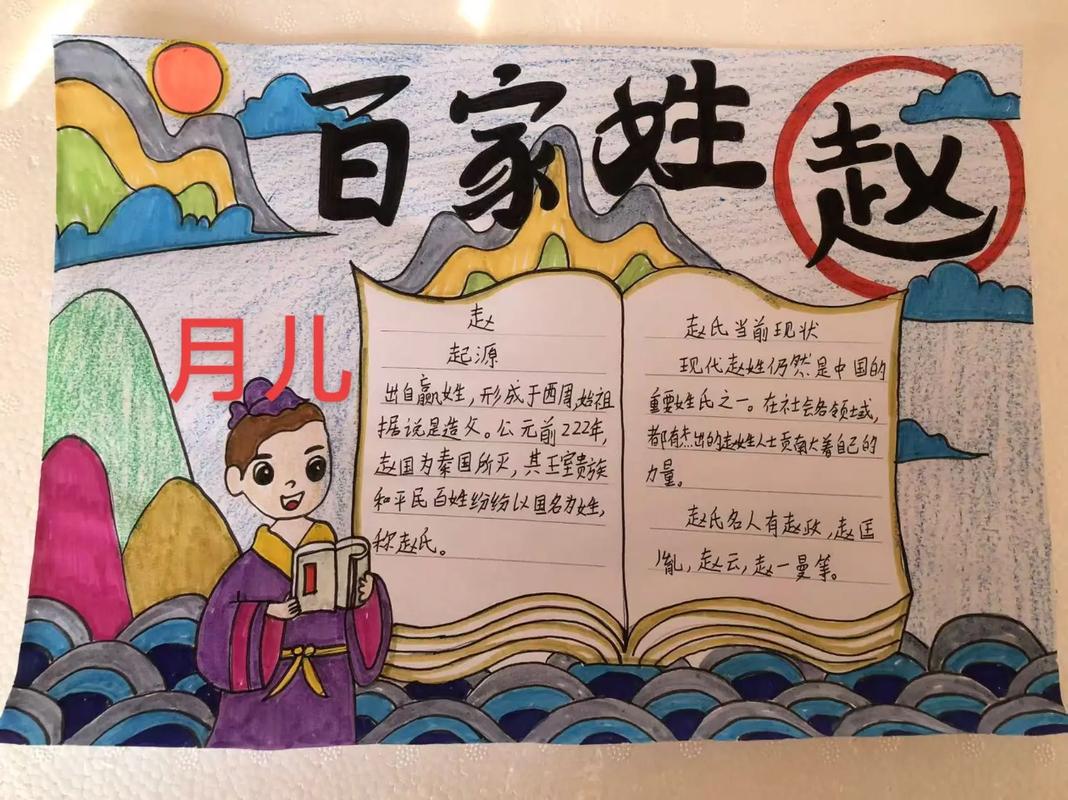 百家姓 赵
月儿
赵
起源
出自嬴姓，形成于西周，始祖
据说是造父。公元前222年，
赵国为秦国所灭，其王室贵族
和平民百姓纷纷以国名为姓，
称赵氏。
赵氏当前现状
现代赵姓仍然是中国的
重要姓氏之一。在社会各领域，
都有杰出的赵姓人士贡献着自己的
力量。
赵氏名人有赵政，赵匡
胤，赵云，赵一曼等。